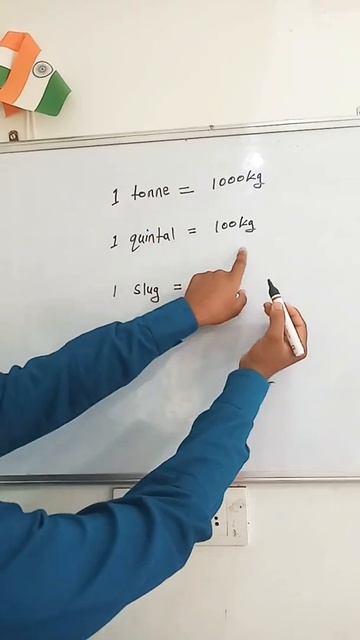 1 tonne = 1000kg
1 quintal = 100kg
1 slug =